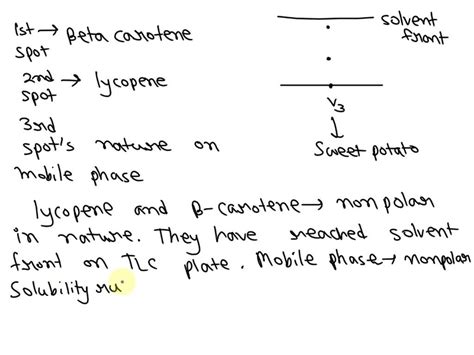 1st → Beta carotene
spot
2nd → lycopene
spot
3rd
spot's nature on
mobile phase
solvent
front
V3
Sweet potato
lycopene and β-carotene → nonpolar
in nature. They have reached solvent
front on TLC plate. Mobile phase → nonpolar
Solubility ru